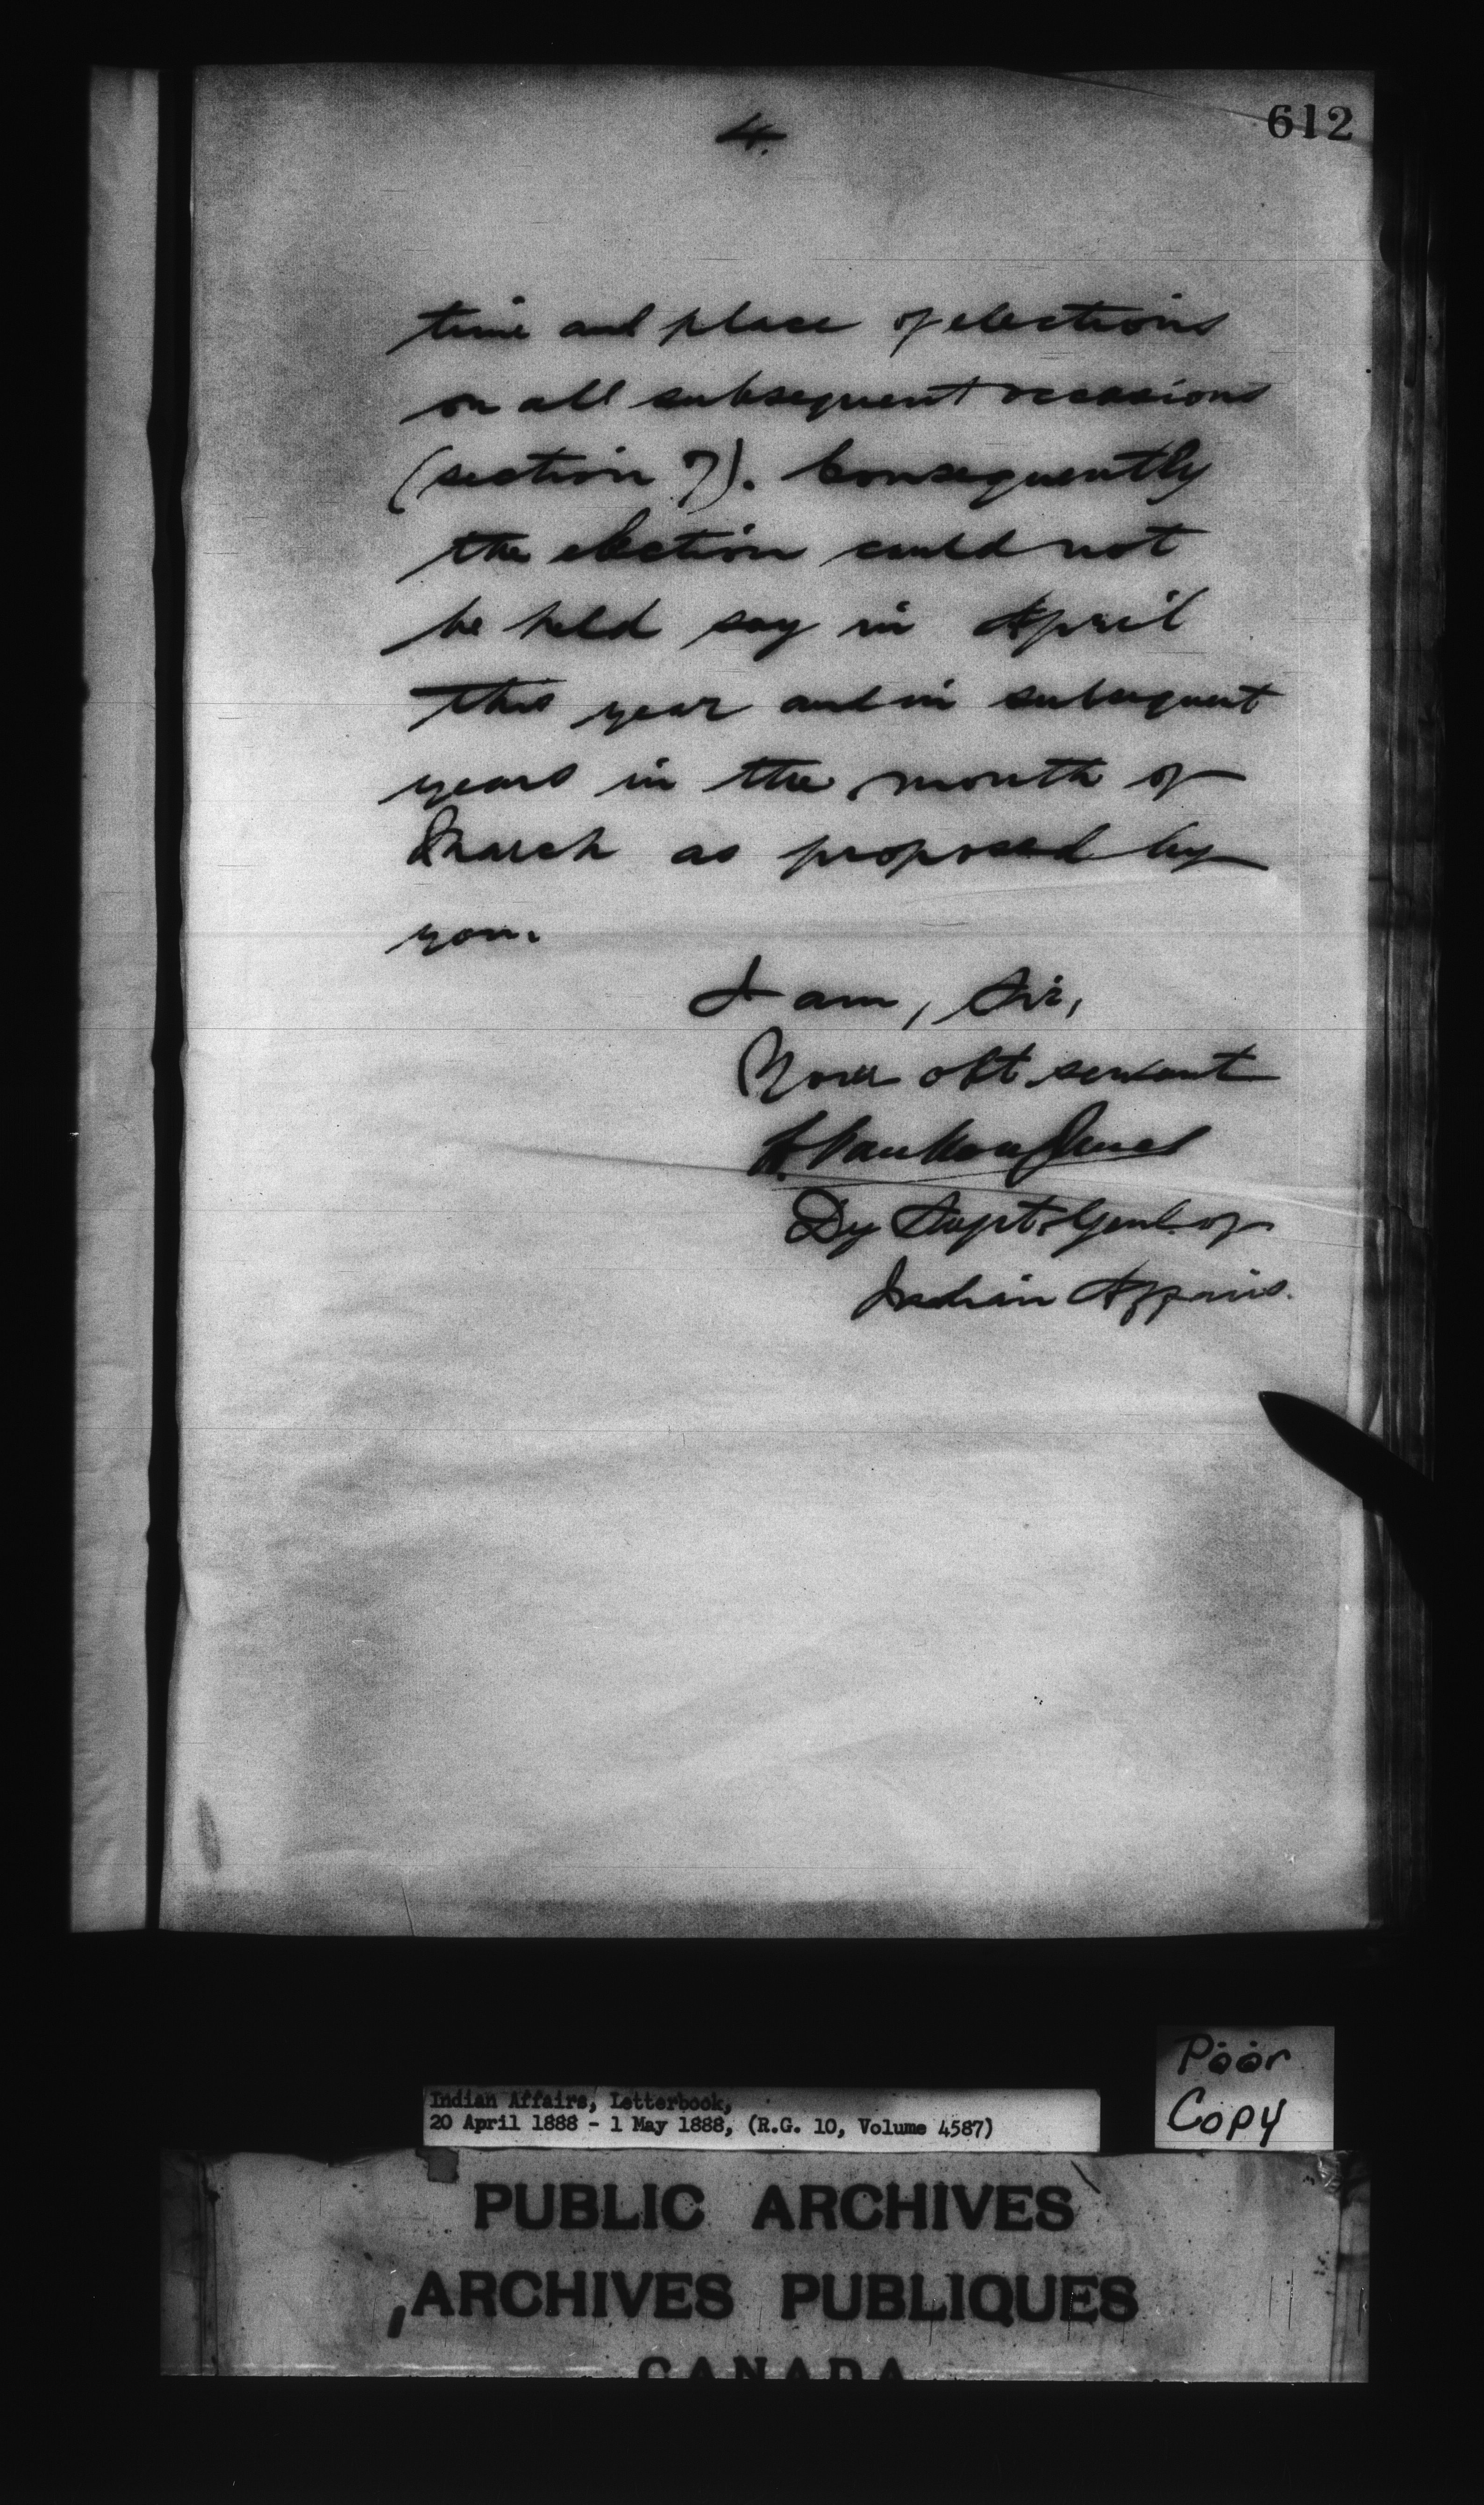 4.
612
time and place of elections
on all subsequent occasions
(section 7). Consequently
the election could not
be held say in April
this year and in subsequent
years in the month of
March as proposed by
you.
I am, Sir,
Your obt servant
L. Vankoughnet
Dy Supt. Genl. of
Indian Affairs.
Poor
Copy
Indian Affairs, Letterbook,
20 April 1888 - 1 May 1888, (R.G. 10, Volume 4587)
PUBLIC ARCHIVES
ARCHIVES PUBLIQUES
CANADA